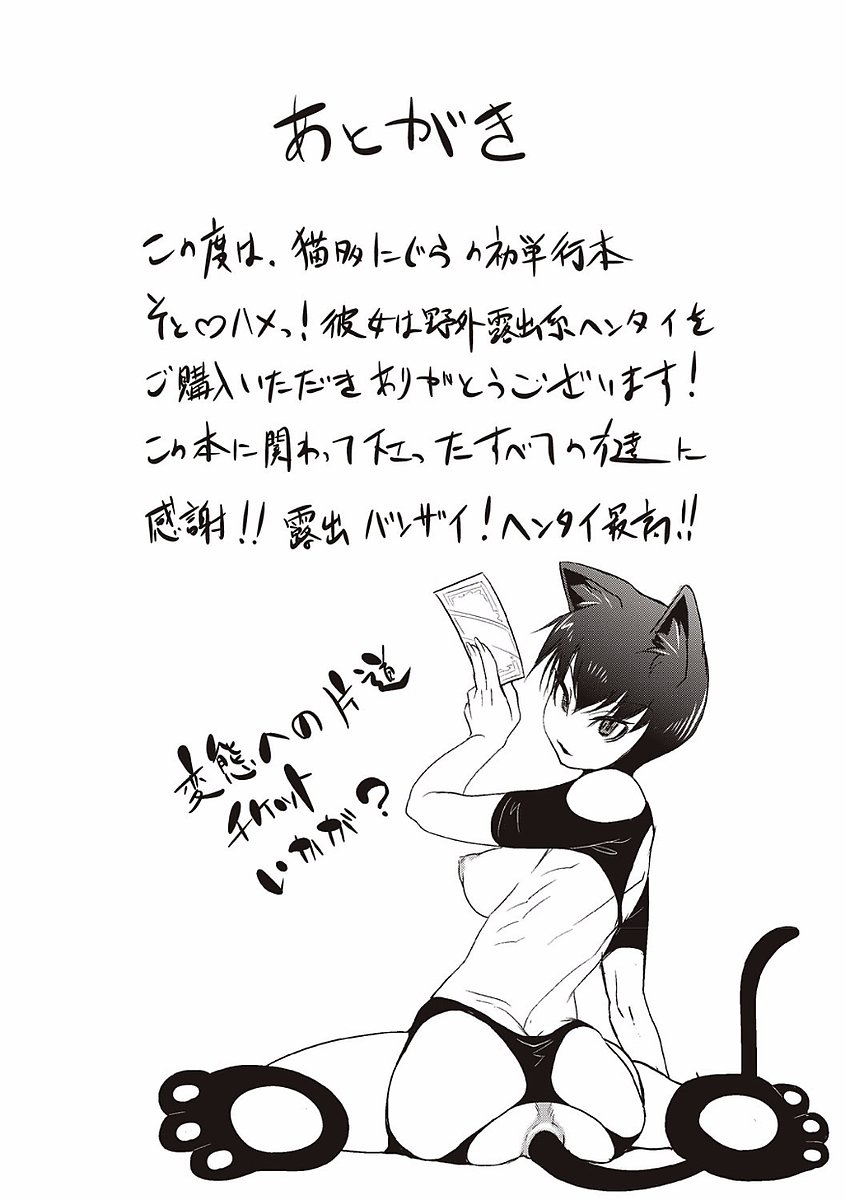 あとがき
この度は、猫夛にぐらの初単行本
そと♡ハメっ!彼女は野外露出系ヘンタイを
ご購入いただきありがとうございます!
この本に関わって下さったすべての方達に
感謝!!露出バンザイ!ヘンタイ最高!!
変態への片道
チケット
いかが?